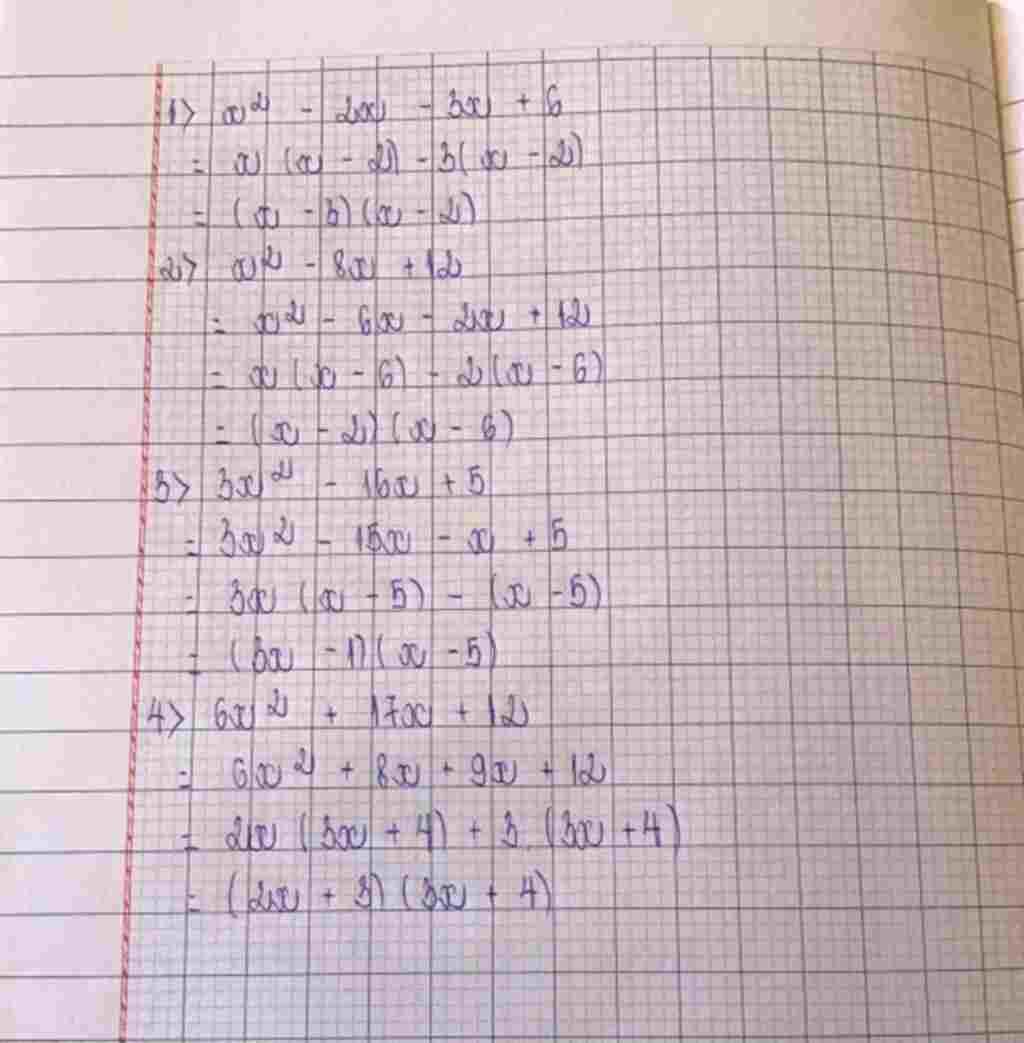 1> x² - 2x - 3x + 6
= x (x - 2) - 3(x - 2)
= (x - 3)(x - 2)
2> x² - 8x + 12
= x² - 6x - 2x + 12
= x (x - 6) - 2(x - 6)
= (x - 2)(x - 6)
3> 3x² - 16x + 5
= 3x² - 15x - x + 5
= 3x (x - 5) - (x - 5)
= (3x - 1)(x - 5)
4> 6x² + 17x + 12
= 6x² + 8x + 9x + 12
= 2x (3x + 4) + 3. (3x + 4)
= (2x + 3) (3x + 4)